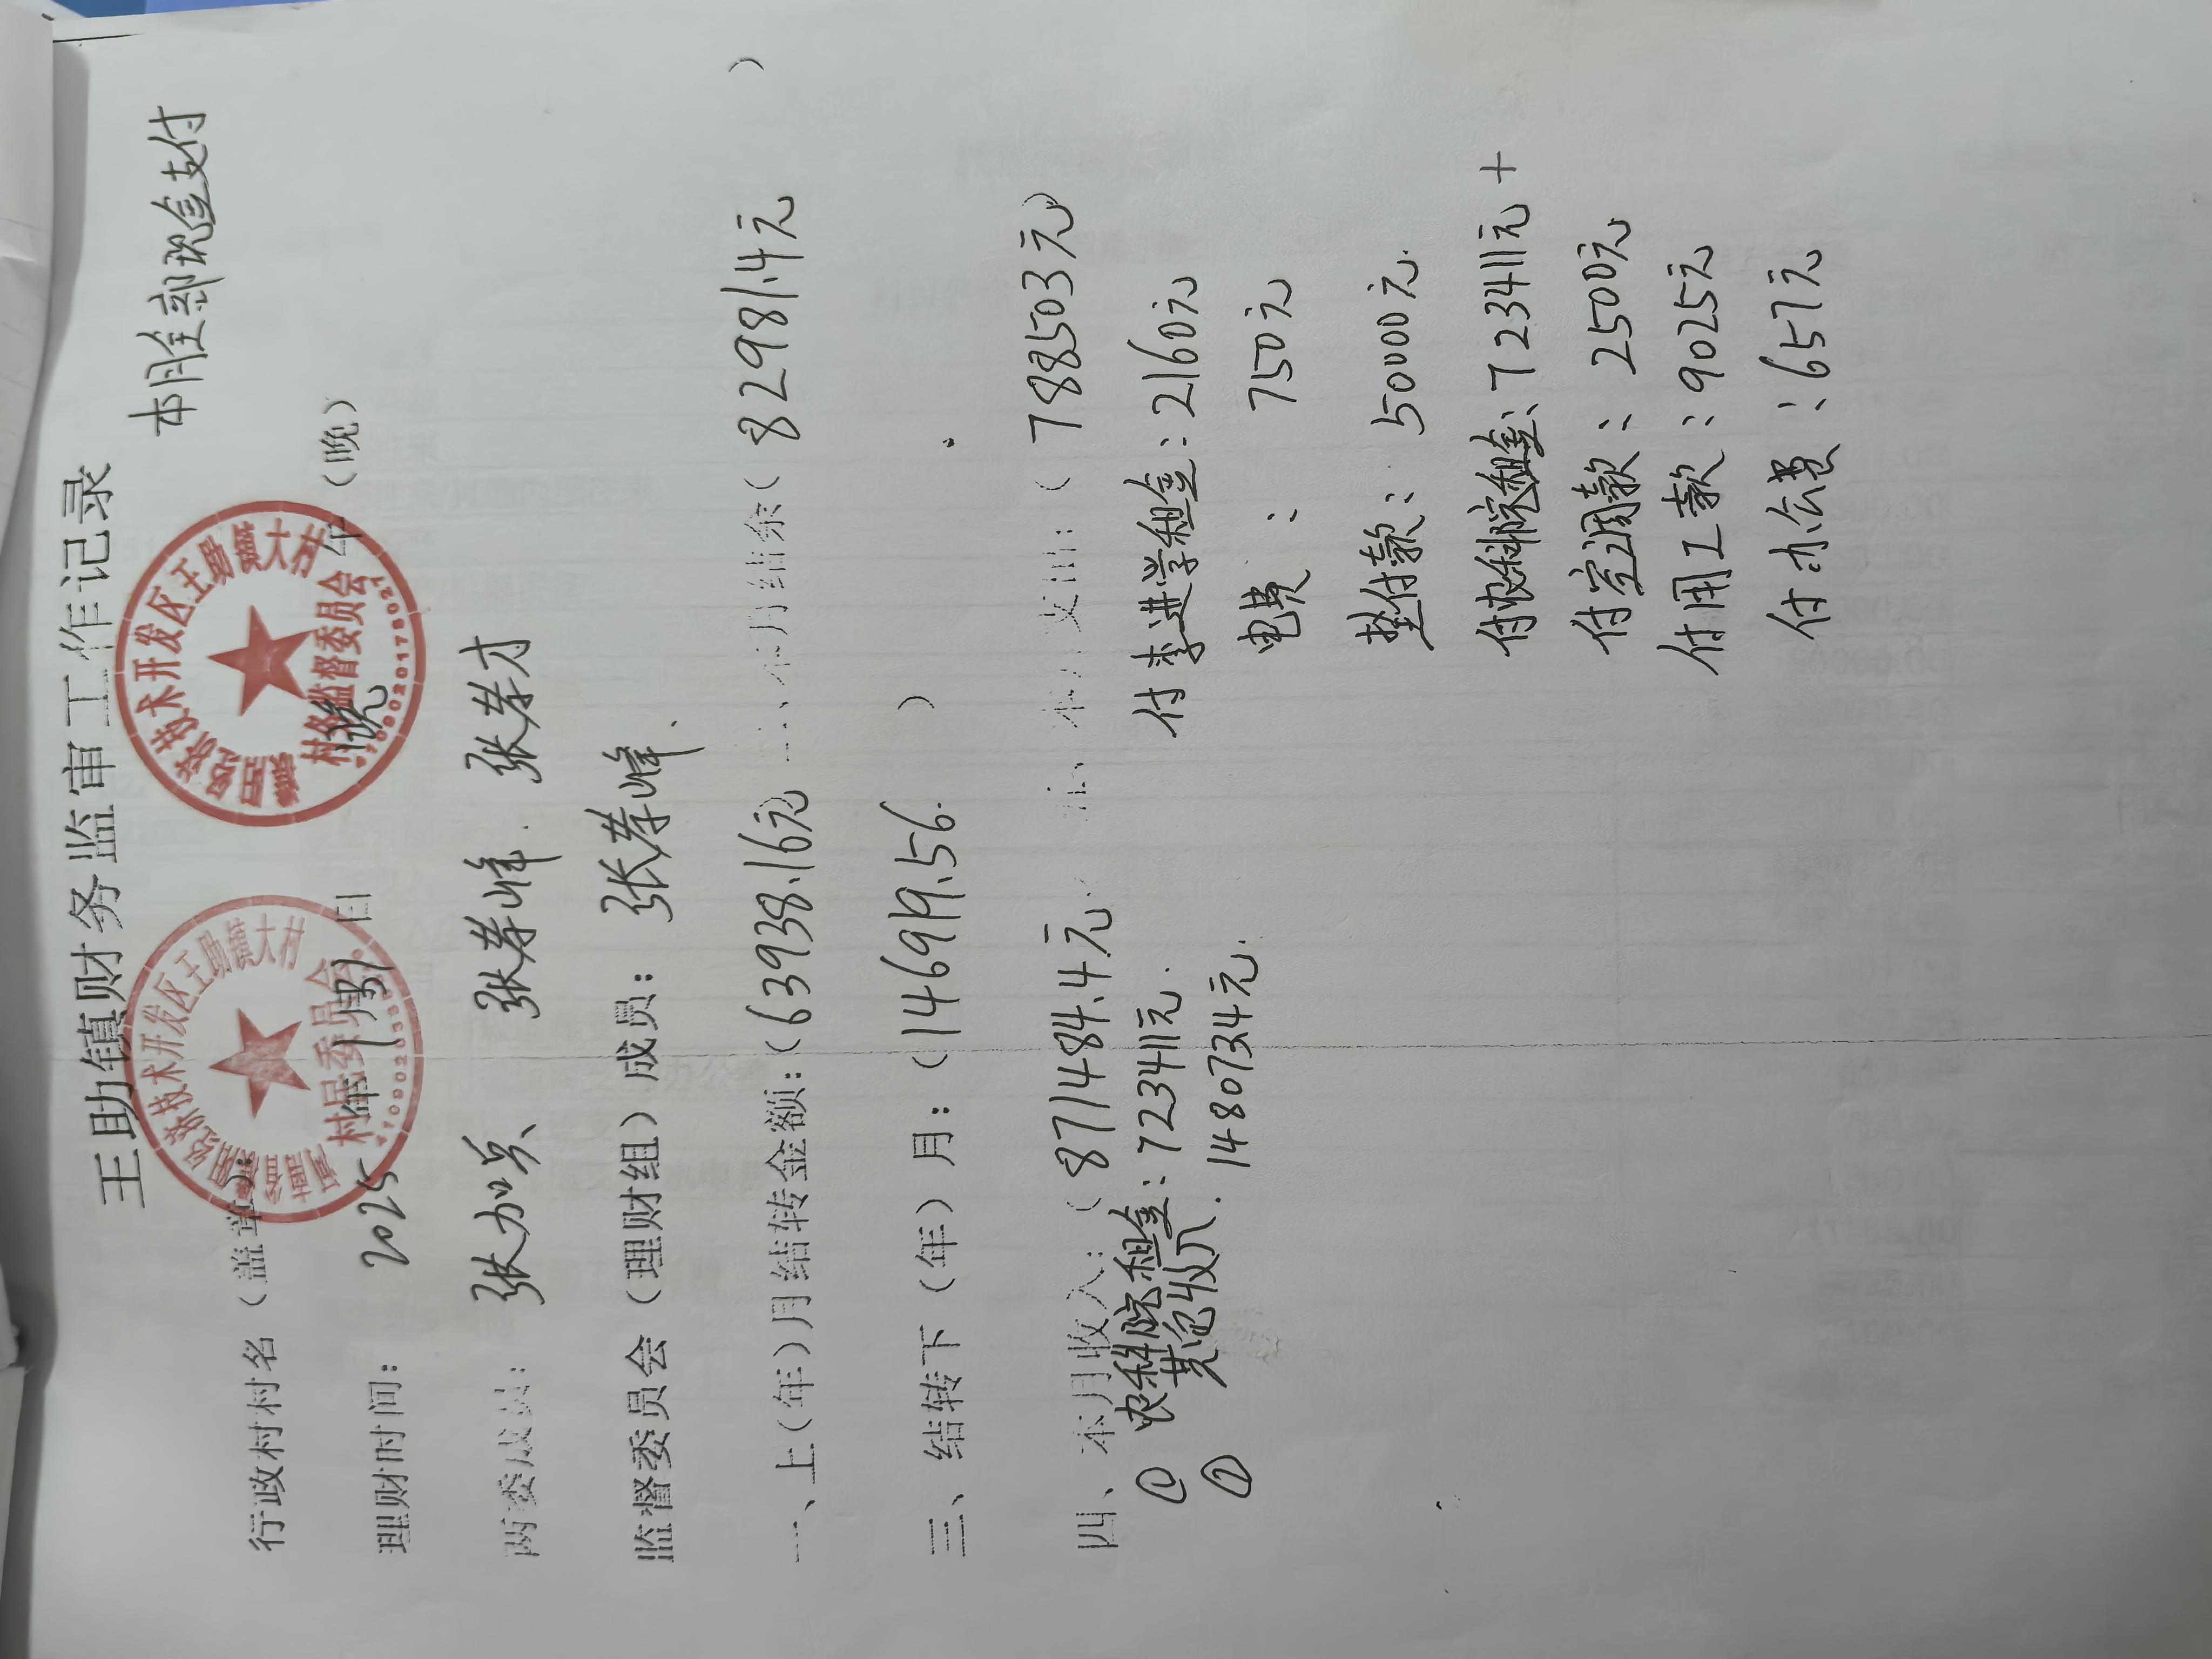 王助镇财务监审工作记录
本月全部现金支付
行政村村名（盖章）：
理财时间： 2025 年 1月31日 晚 午（晚）
技术开发区王助镇大村
村居委员会
技术开发区王助镇大村
村务监督委员会
两委成员： 张加兴 张寿峰. 张寿才
监督委员会（理财组）成员： 张寿峰.
一、上（年）月结转金额：（63938.16元 二、本月结余（82981.4元 ）
三、结转下（年）月：（146919.56. ）
四、本月收入：（871484.4元. 五、本月支出：（788503元）
① 农科院租金：723411元.
② 其它收入. 148073.4元.
付李进学租金：2160元
电费： 750元
垫付款： 50000元.
付农科院租金：723411元+
付空调款： 2500元
付用工款：9025元
付办公费：657元